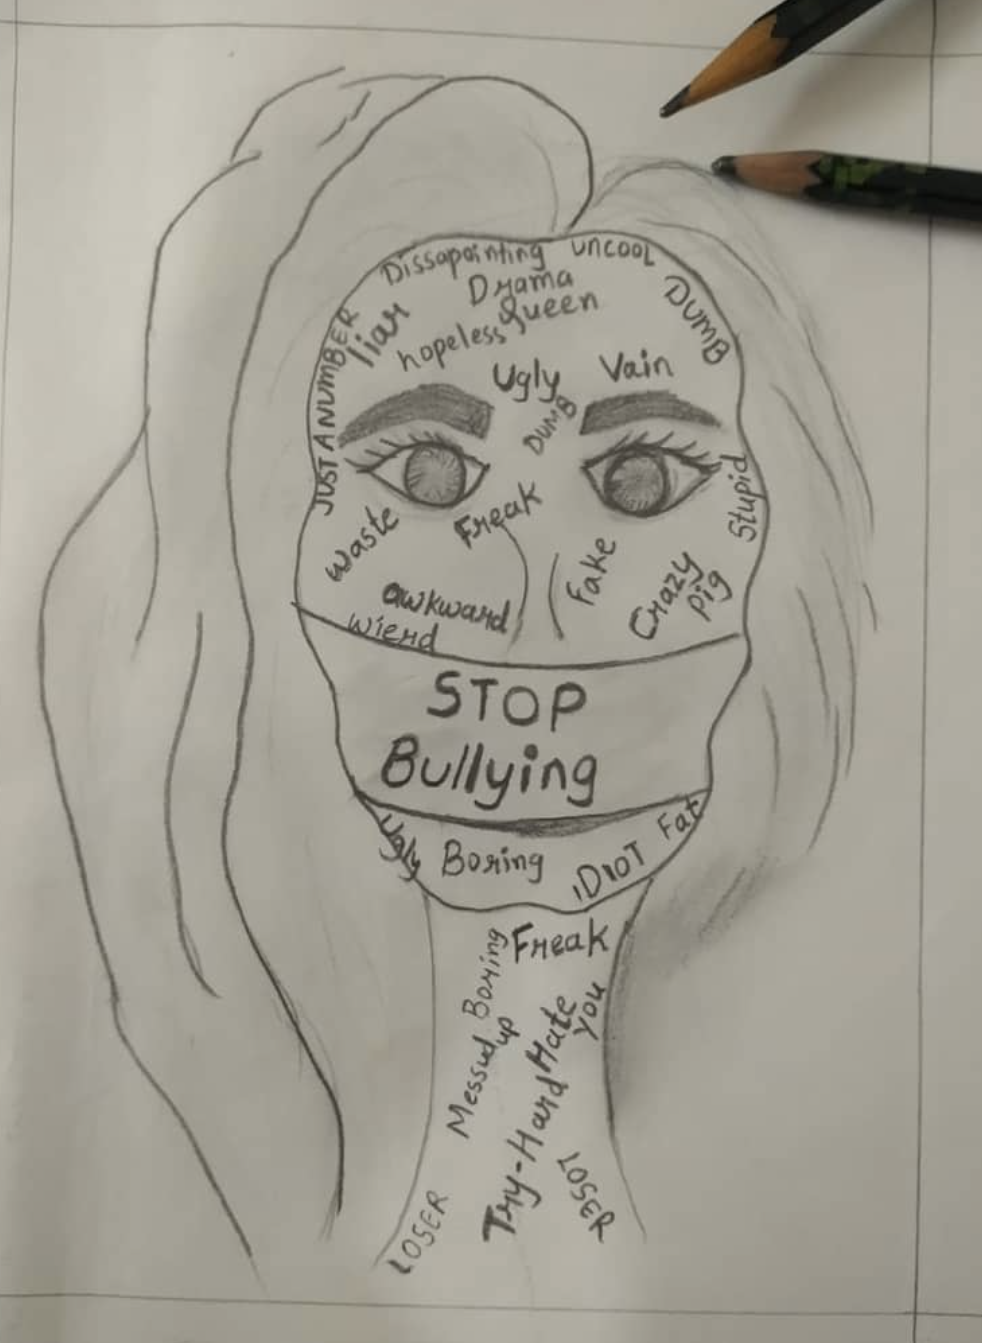 Dissapointing
UNCOOL
Drama
Queen
DUMB
liar
hopeless
JUST A NUMBER
Ugly
Vain
DUMB
Waste
Freak
Stupid
Fake
Crazy
Pig
awkward
wierd
STOP
Bullying
Ugly
Boring
iDIOT
Fat
Freak
Boring
Messud up
Hate
you
Try-Hard
LOSER
LOSER